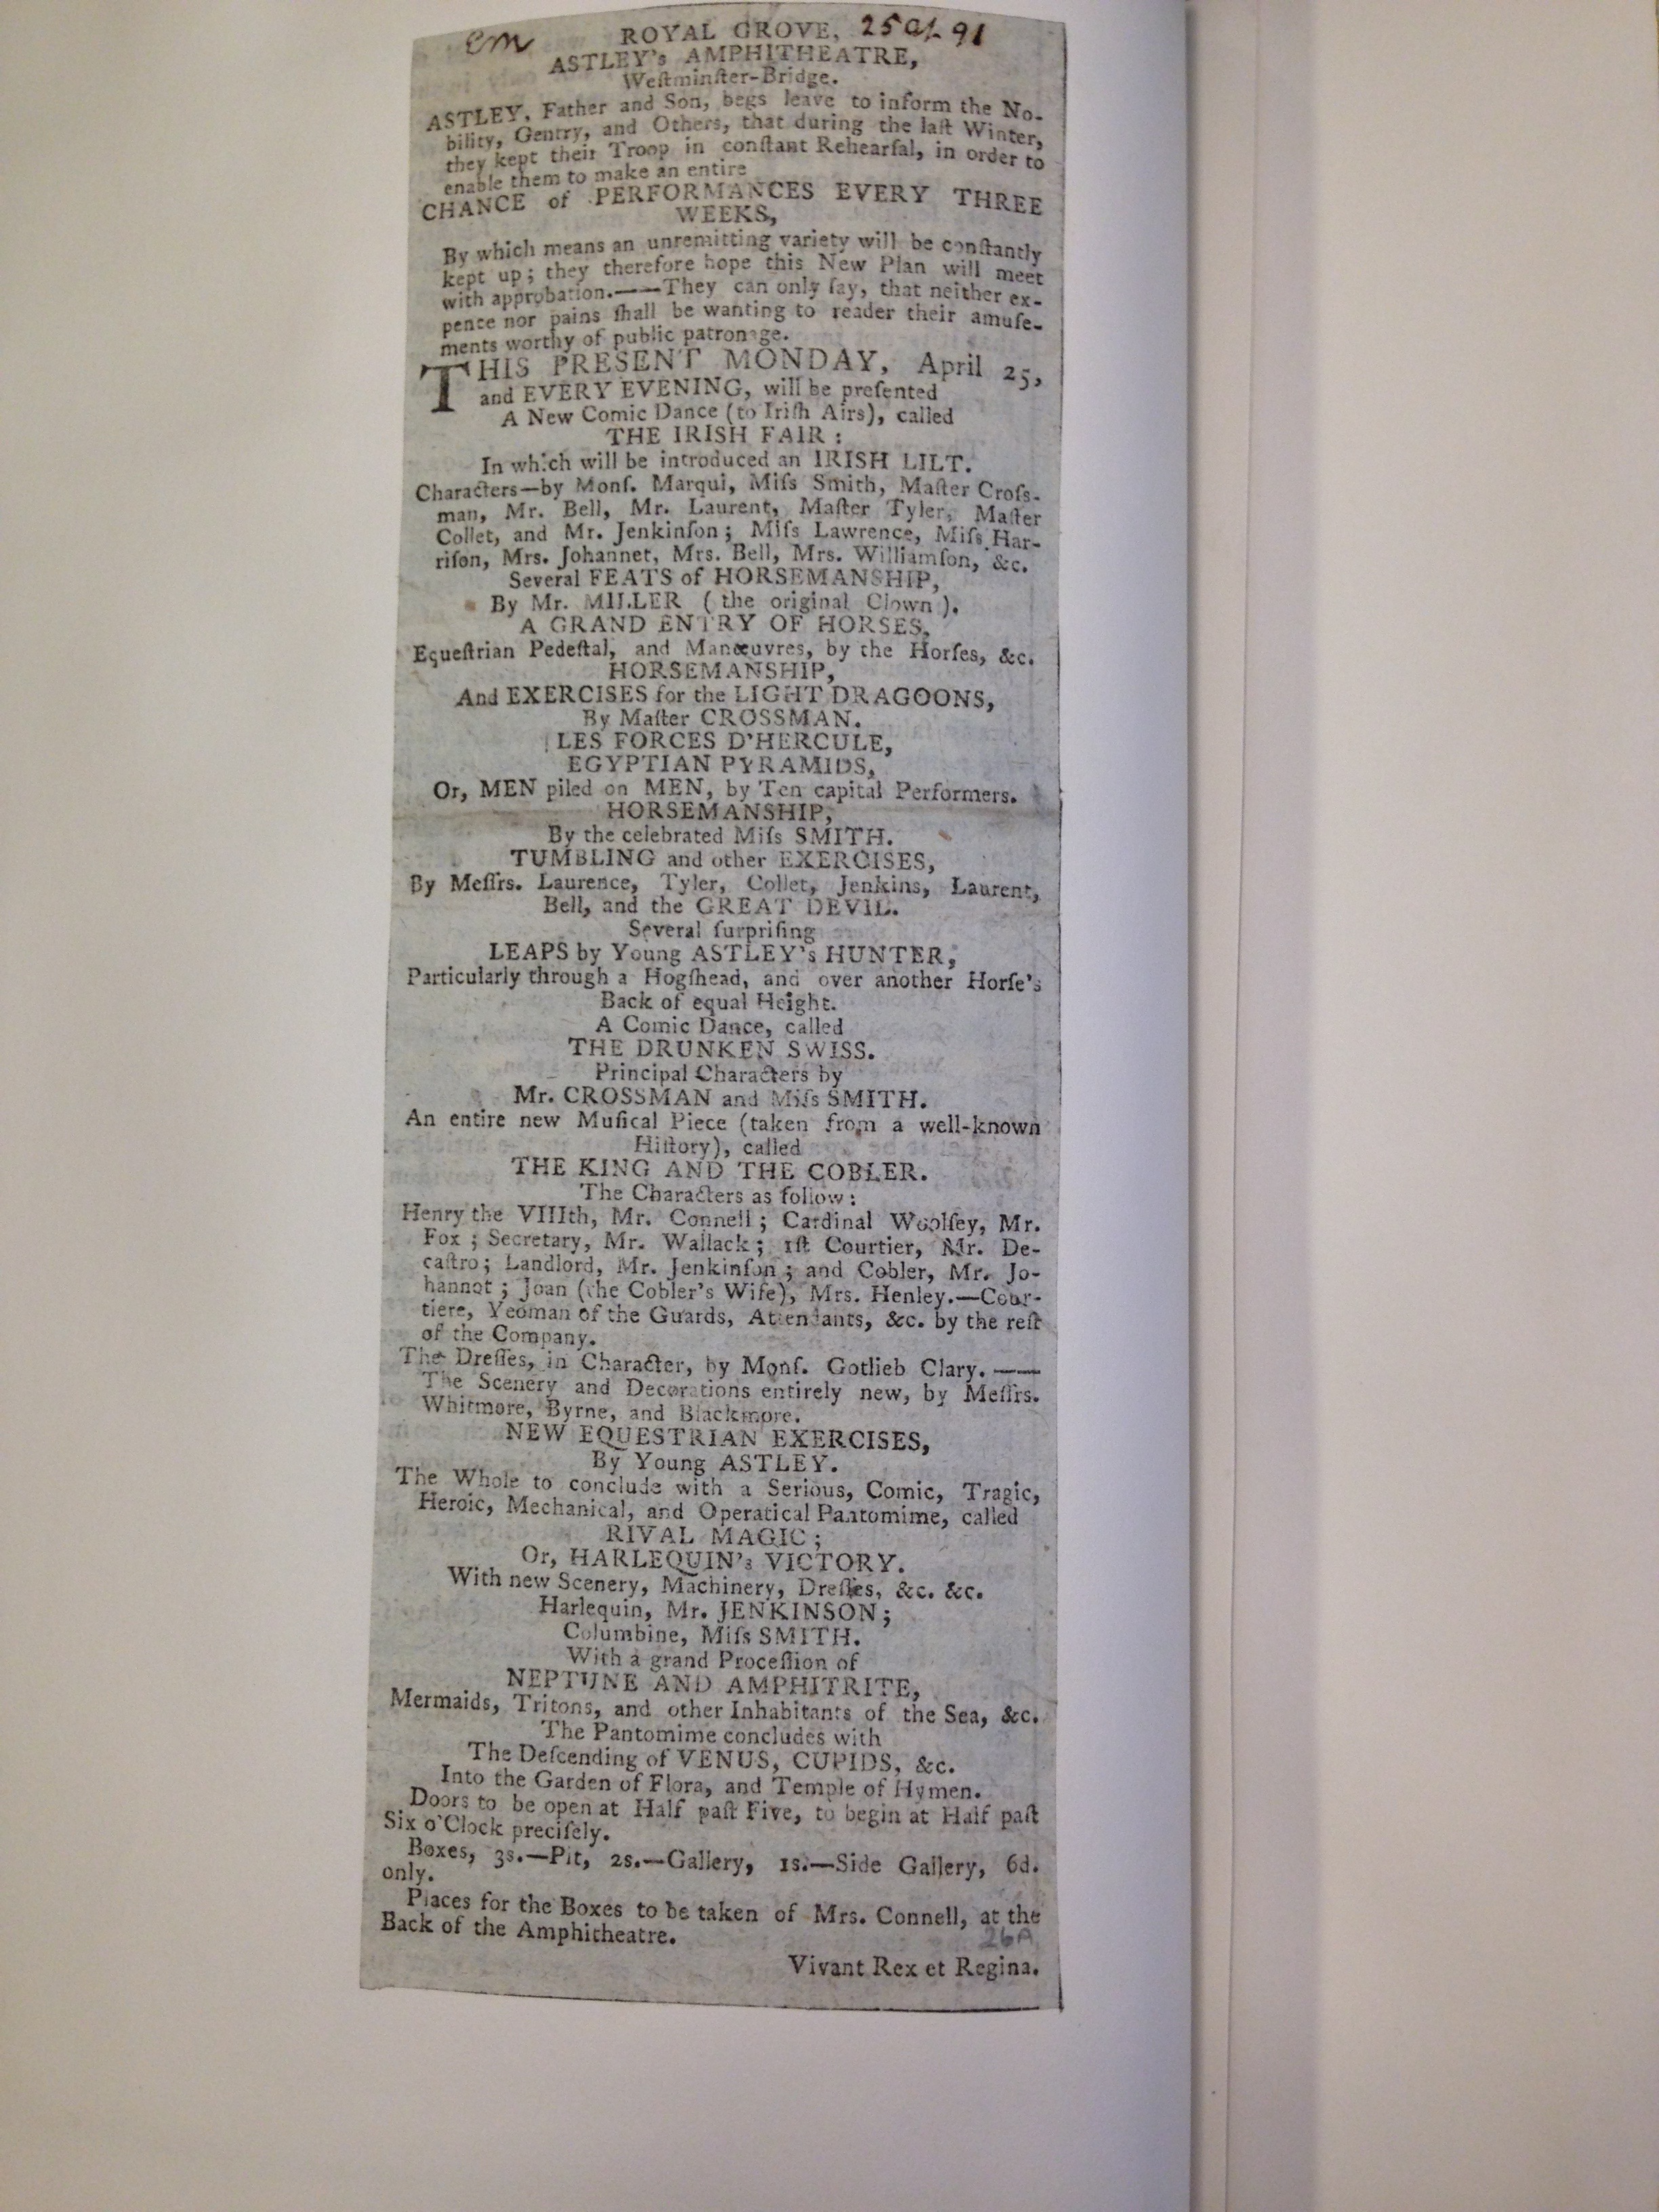 em ROYAL GROVE, 25 ap 91
ASTLEY's AMPHITHEATRE,
Weſtminſter-Bridge.
ASTLEY, Father and Son, begs leave to inform the No-
bility, Gentry, and Others, that during the laſt Winter,
they kept their Troop in conſtant Rehearſal, in order to
enable them to make an entire
CHANCE of PERFORMANCES EVERY THREE
WEEKS,
By which means an unremitting variety will be conſtantly
kept up; they therefore hope this New Plan will meet
with approbation.——They can only ſay, that neither ex-
pence nor pains ſhall be wanting to reader their amuſe-
ments worthy of public patronage.
THIS PRESENT MONDAY, April 25,
and EVERY EVENING, will be preſented
A New Comic Dance (to Iriſh Airs), called
THE IRISH FAIR:
In which will be introduced an IRISH LILT.
Characters—by Monſ. Marqui, Miſs Smith, Maſter Croſs-
man, Mr. Bell, Mr. Laurent, Maſter Tyler, Maſter
Collet, and Mr. Jenkinſon; Miſs Lawrence, Miſs Har-
riſon, Mrs. Johannet, Mrs. Bell, Mrs. Williamſon, &c.
Several FEATS of HORSEMANSHIP,
By Mr. MILLER (the original Clown).
A GRAND ENTRY OF HORSES,
Equeſtrian Pedeſtal, and Manœuvres, by the Horſes, &c.
HORSEMANSHIP,
And EXERCISES for the LIGHT DRAGOONS,
By Maſter CROSSMAN.
LES FORCES D'HERCULE,
EGYPTIAN PYRAMIDS,
Or, MEN piled on MEN, by Ten capital Performers.
HORSEMANSHIP,
By the celebrated Miſs SMITH.
TUMBLING and other EXERCISES,
By Meſſrs. Laurence, Tyler, Collet, Jenkins, Laurent,
Bell, and the GREAT DEVIL.
Several ſurpriſing
LEAPS by Young ASTLEY's HUNTER,
Particularly through a Hogſhead, and over another Horſe's
Back of equal Height.
A Comic Dance, called
THE DRUNKEN SWISS.
Principal Characters by
Mr. CROSSMAN and Miſs SMITH.
An entire new Muſical Piece (taken from a well-known
Hiſtory), called
THE KING AND THE COBLER.
The Characters as follow:
Henry the VIIIth, Mr. Connell; Cardinal Woolſey, Mr.
Fox; Secretary, Mr. Wallack; 1ſt Courtier, Mr. De-
caſtro; Landlord, Mr. Jenkinſon; and Cobler, Mr. Jo-
hannot; Joan (the Cobler's Wife), Mrs. Henley.—Cour-
tiere, Yeoman of the Guards, Attendants, &c. by the reſt
of the Company.
The Dreſſes, in Character, by Monſ. Gotlieb Clary.——
The Scenery and Decorations entirely new, by Meſſrs.
Whitmore, Byrne, and Blackmore.
NEW EQUESTRIAN EXERCISES,
By Young ASTLEY.
The Whole to conclude with a Serious, Comic, Tragic,
Heroic, Mechanical, and Operatical Pantomime, called
RIVAL MAGIC;
Or, HARLEQUIN's VICTORY.
With new Scenery, Machinery, Dreſſes, &c. &c.
Harlequin, Mr. JENKINSON;
Columbine, Miſs SMITH.
With a grand Proceſſion of
NEPTUNE AND AMPHITRITE,
Mermaids, Tritons, and other Inhabitants of the Sea, &c.
The Pantomime concludes with
The Deſcending of VENUS, CUPIDS, &c.
Into the Garden of Flora, and Temple of Hymen.
Doors to be open at Half paſt Five, to begin at Half paſt
Six o'Clock preciſely.
Boxes, 3s.—Pit, 2s.—Gallery, 1s.—Side Gallery, 6d.
only.
Places for the Boxes to be taken of Mrs. Connell, at the
Back of the Amphitheatre.
26A
Vivant Rex et Regina.